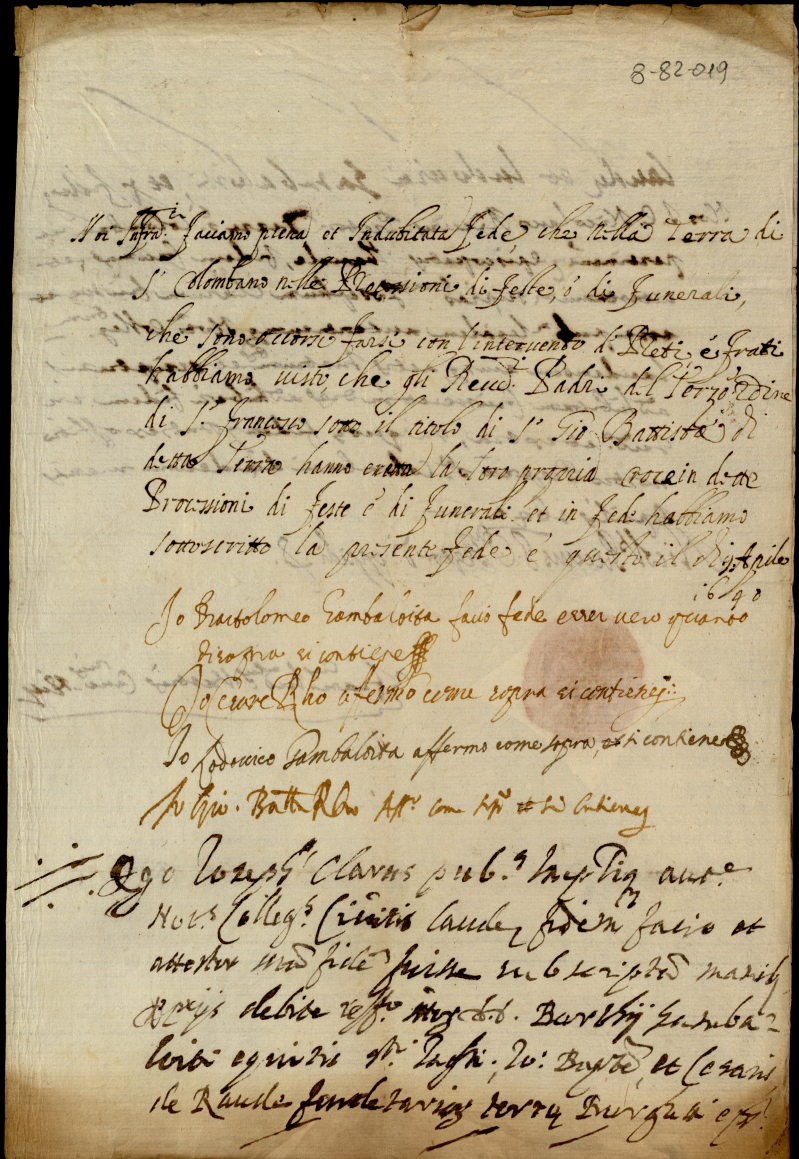 8-82-019
Noi Infra.ti facciamo piena et Indubitata fede, che nella Terra di
S. Colombano nelle Processioni di feste, ò di funerali,
che sono occorse farsi con l'intervento di Preti, é frati
habbiamo visto che gli Reud.i Padri del Terz'ordine
di S. francesco sotto il titolo di S. Gio Battista di
detta Terra hanno la loro propria croce in dette
Processioni di feste é di funerali. et in fede habbiamo
sottoscritto la presente fede é questo il di 9. Aprile
1690
Io Bartolomeo Gambaloita facio fede esser vero quanto
disopra si contiene
Io Cesare Rho affermo come sopra si contiene
Io Lodovico Gambaloita affermo come sopra, si contiene
Io Gio. Batta Rho Aff.o come sop.a si Contiene
Ego Joseph Clarus pub.s aut.e
Not.s Colleg.s Laude, fidem facio et
attestor fide fuisse subscripta manib
debite Barthij Gamba=
Bapte, et Cesaris
de Raude feudetarios terre Burgeti